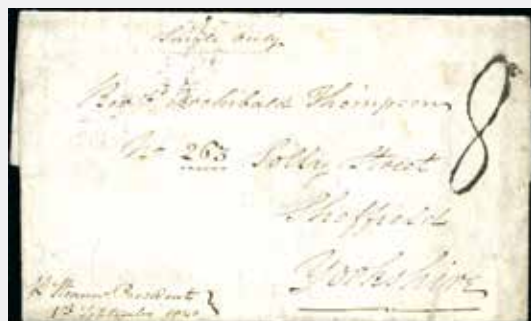 Single only
Revd. Archibald Thompson
No 263 Solly Street
Sheffield
Yorkshire
8
pr Steamer President
1st September 1840